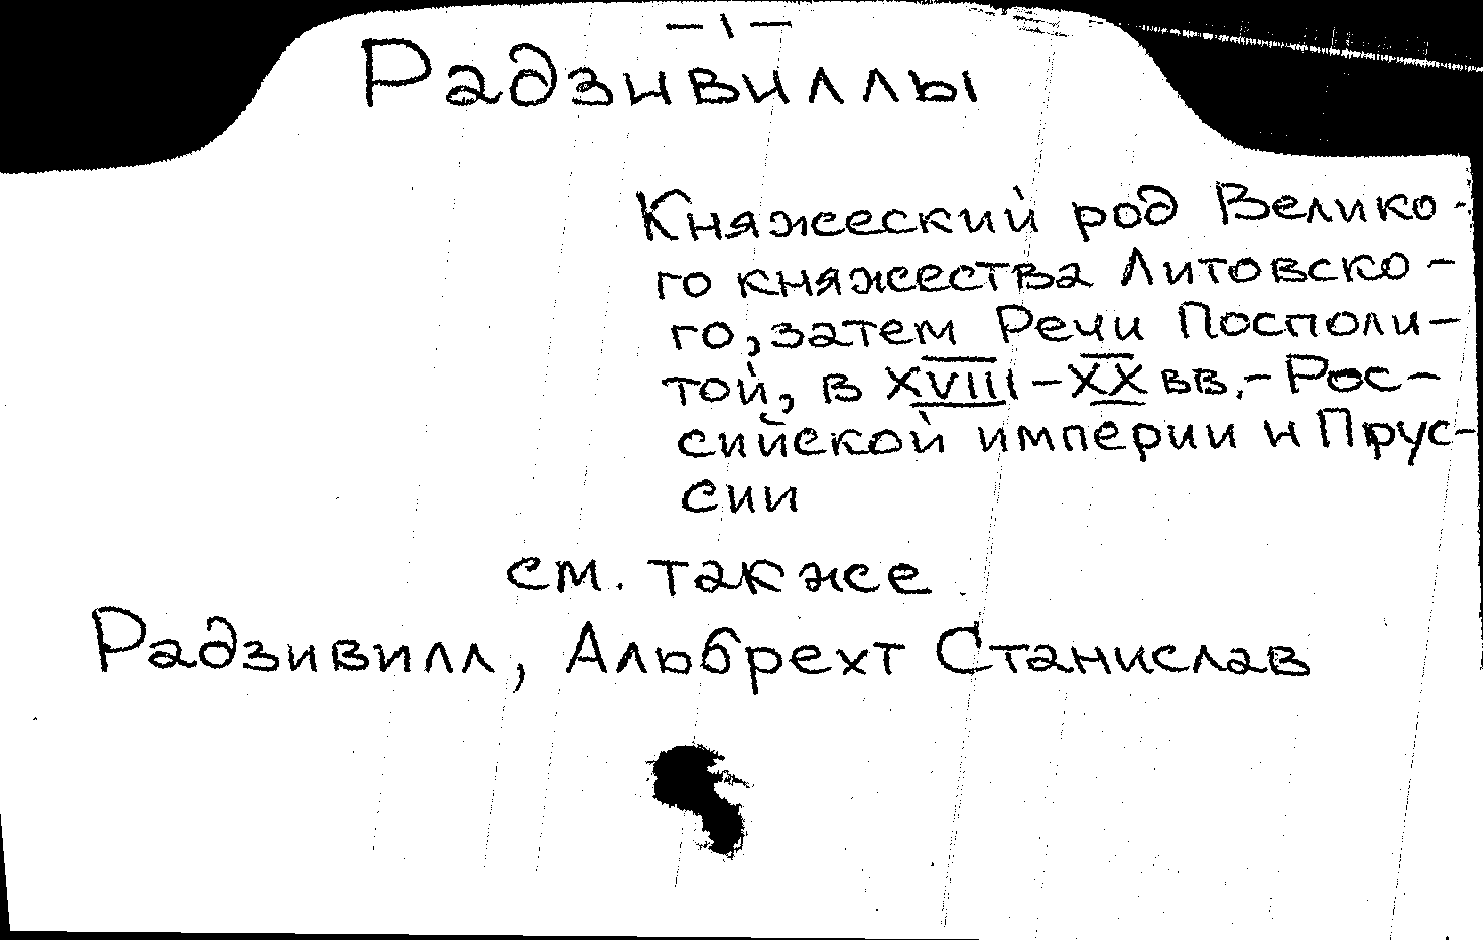 — 1 —
Радзивиллы
Княжеский род Велико-
го княжества Литовско-
го, затем Речи Посполи-
той, в XVIII – XX вв. – Рос-
сийской империи и Прус-
сии
см. также
Радзивилл, Альбрехт Станислав